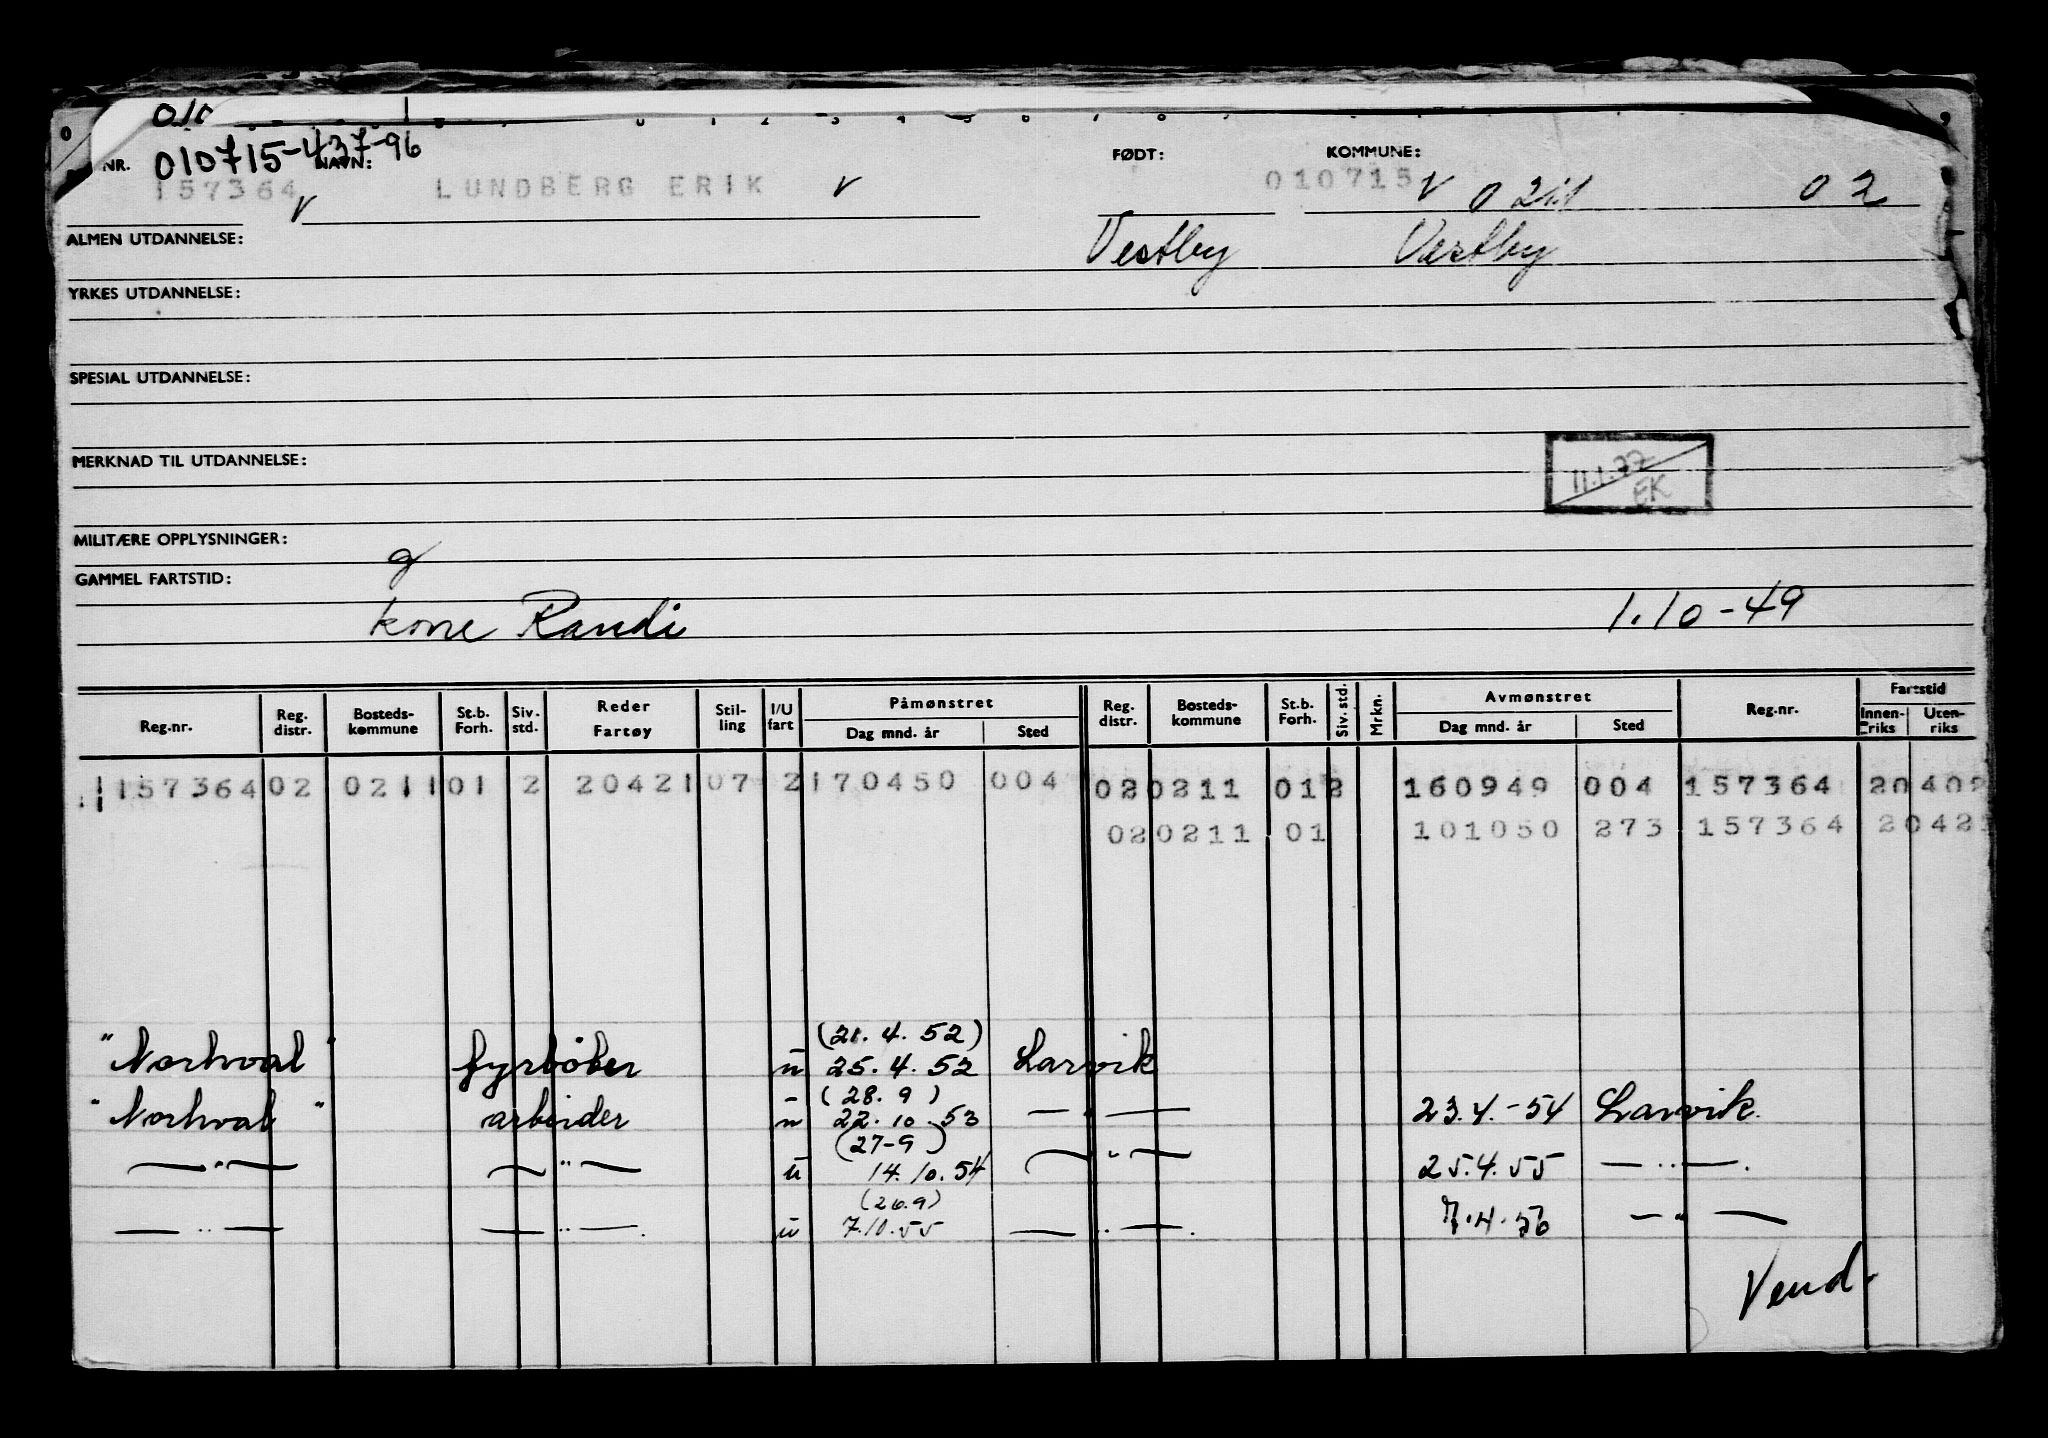 010
0 0 1 2 3 4 5 6 7 8 9
NR. 010715-437-96 NAVN: FØDT: KOMMUNE:
157364 v LUNDBERG ERIK v 010715 v 0211 02
ALMEN UTDANNELSE: Vestby Vestby
YRKES UTDANNELSE:
SPESIAL UTDANNELSE:
MERKNAD TIL UTDANNELSE: 11.1.77
EK
MILITÆRE OPPLYSNINGER:
g
GAMMEL FARTSTID:
kone Randi 1.10-49
Reg.nr. Reg. distr. Bosteds-kommune St.b. Forh. Siv. std. Reder Fartøy Stil-ling I/U fart Påmønstret Dag mnd. år Sted Reg. distr. Bosteds-kommune St.b. Forh. Siv. std. Mrkn. Avmønstret Dag mnd. år Sted Reg.nr. Fartstid Innen-riks Uten-riks
157364 02 0211 01 2 20421 07 2 170450 004 02 0211 01 2 160949 004 157364 20402
02 0211 01 101050 273 157364 2042
(21.4.52)
"Norhval" fyrbøter u 25.4.52 Larvik
(28.9)
"Norhval" arbeider u 22.10.53 — " — 23.4.-54 Larvik.
(27-9)
— " — — " — u 14.10.54 — " — 25.4.55 — " —.
(26.9)
— " — — " —. u 7.10.55 — " —. 7.4.56 — " —
Vend.